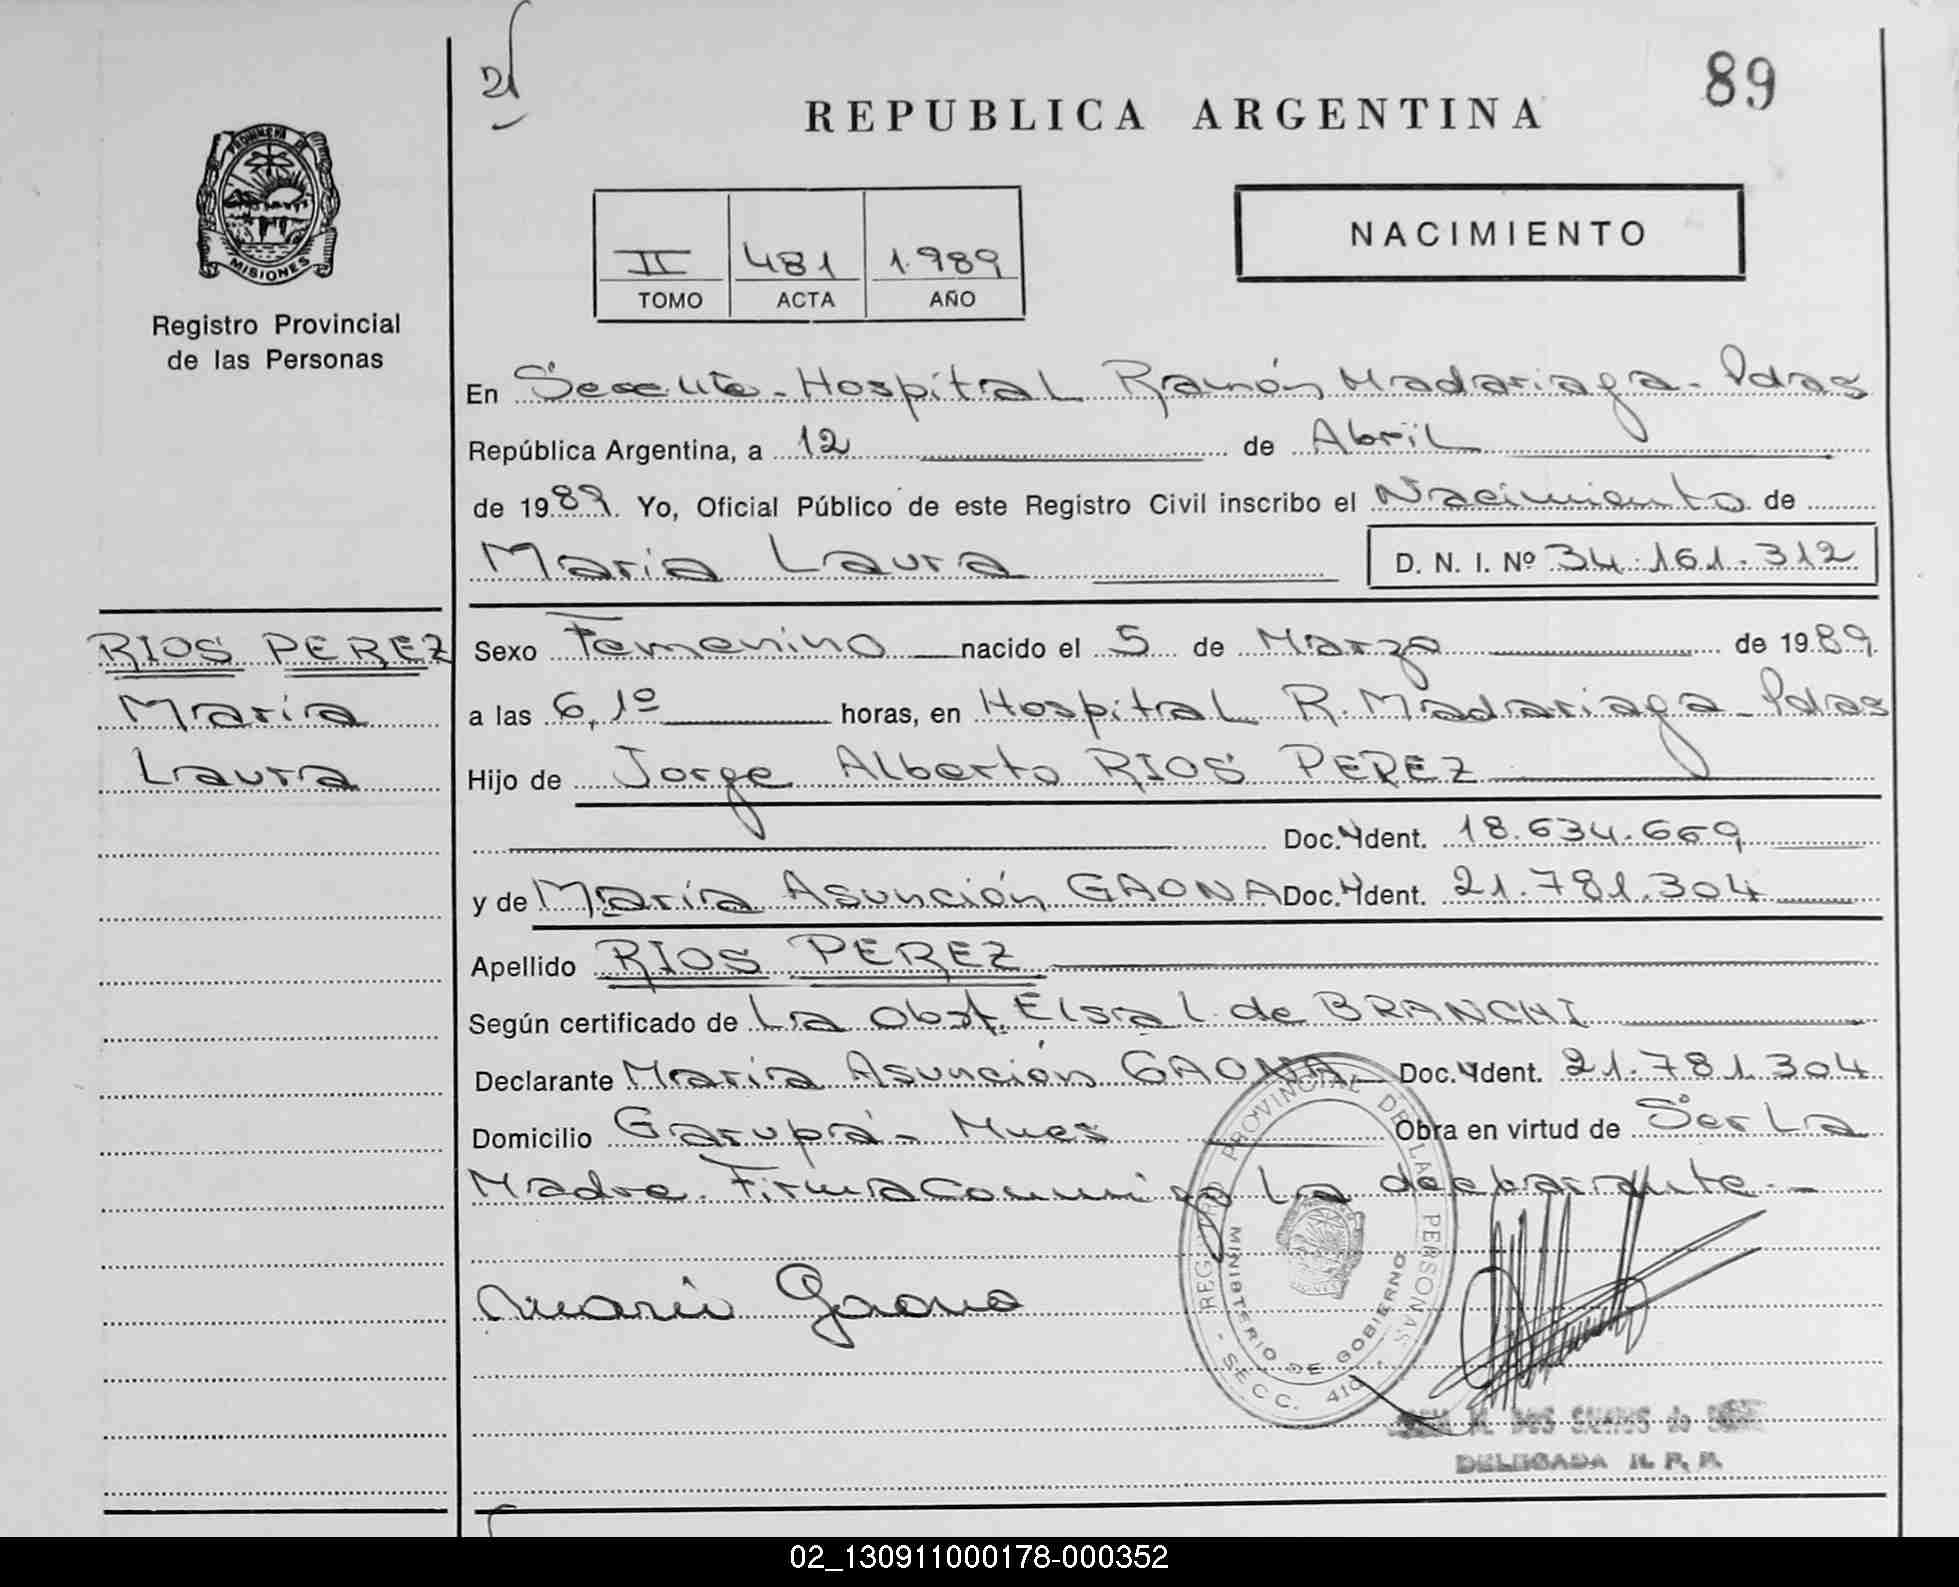 89
REPUBLICA ARGENTINA
PROVINCIA DE
MISIONES
Registro Provincial
de las Personas
II 481 1.989
TOMO ACTA AÑO
NACIMIENTO
En Hospital Ramón Madariaga - Pdas
República Argentina, a 12 de Abril
de 1989. Yo, Oficial Público de este Registro Civil inscribo el Nacimiento de
Maria Laura D. N. I. Nº 34.161.312
RIOS PEREZ
Maria
Laura
Sexo Femenino nacido el 5 de Marzo de 1989
a las 6,1º horas, en Hospital R. Madariaga - Pdas
Hijo de Jorge Alberto RIOS PEREZ
Doc. Ident. 18.634.669
y de María Asunción GAONA Doc. Ident. 21.781.304
Apellido RIOS PEREZ
Según certificado de La Obst. Elsa L. de BRANCHI
Declarante Maria Asunción GAONA Doc. Ident. 21.781.304
Domicilio Garupá - Mnes Obra en virtud de Ser La
Madre. Firma Conmigo La declarante. -
Maria Gaona
REGISTRO PROVINCIAL DE LAS PERSONAS
MINISTERIO DE GOBIERNO
- SECC. 410 -
M. DOS SANTOS de
DELEGADA R. P. P.
02_130911000178-000352